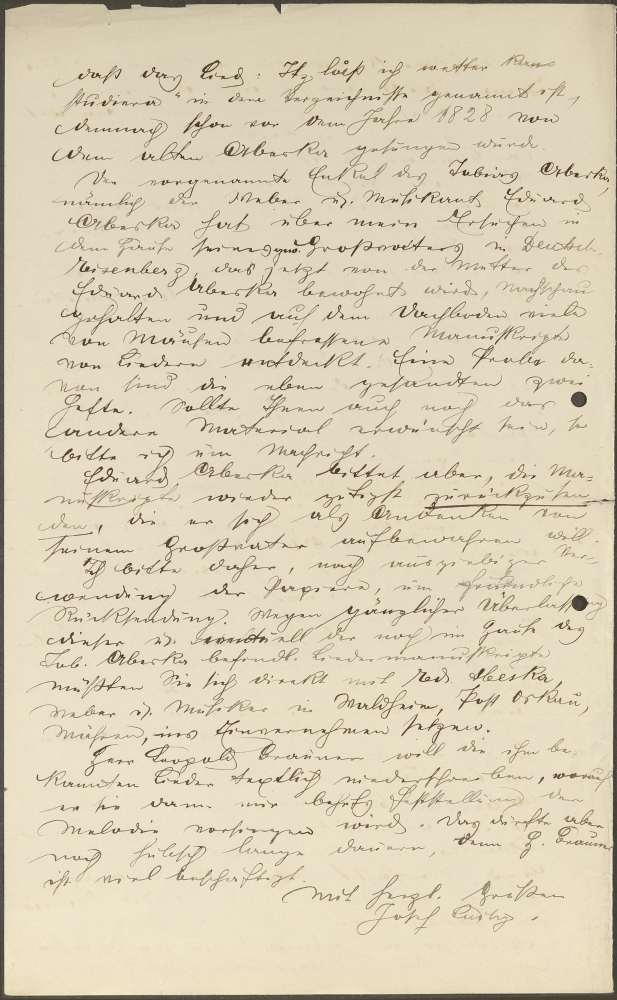 daß das Lied: „Itz loß ich wetter kan
studiern" in dem Verzeichnisse genannt ist,
demnach schon vor dem Jahre 1828 von
dem alten Abeska gesungen wurde.
Der vorgenannte Enkel des Tobias Abeska,
nämlich der Weber u. Musikant Eduard
Abeska hat über mein Ersuchen in
dem Hause seines Großvaters in Deutsch-
Eisenberg, das jetzt von der Mutter des
Eduard Abeska bewohnt wird, Nachschau
gehalten und auf dem Dachboden viele
von Mäusen befressene Manuskripte
von Liedern entdeckt. Eine Probe da-
von sind die eben gesandten zwei
Hefte. Sollte Ihnen auch noch das
andere Material erwünscht sein, so
bitte ich um Nachricht.
Eduard Abeska bittet aber, die Ma-
nuskripte wieder gütigst zurückzusen-
den, die er sich als Andenken von
seinem Großvater aufbewahren will.
Ich bitte daher, nach ausgiebiger Ver-
wendung der Papiere, um freundliche
Rücksendung. Wegen gänzlicher Überlassung
dieser u. eventuell der noch im Hause des
Tob. Abeska befindl. Liedermanuskripte
müßten Sie sich direkt mit Ed. Abeska,
Weber u. Musiker in Waldheim, Post Oskau,
Mähren, ins Einvernehmen setzen.
Herr Leopold Brauner will die ihm be-
kannten Lieder textlich niederschreiben, worauf
er sie dann mir behufs Feststellung der
Melodie vorsingen wird. Das dürfte aber
noch hübsch lange dauern, denn H. Brauner
ist viel beschäftigt.
Mit herzl. Grüßen
Josef